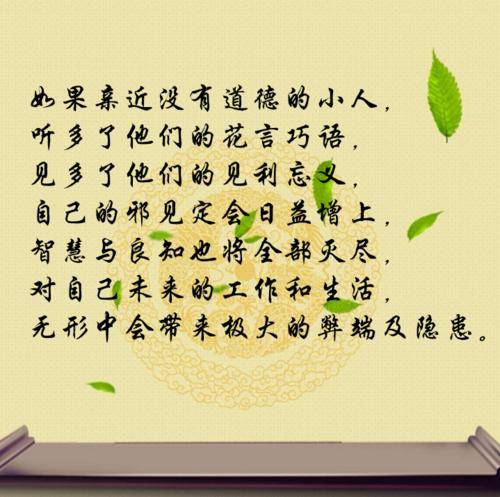 如果亲近没有道德的小人，
听多了他们的花言巧语，
见多了他们的见利忘义，
自己的邪见定会日益增上，
智慧与良知也将全部灭尽，
对自己未来的工作和生活，
无形中会带来极大的弊端及隐患。